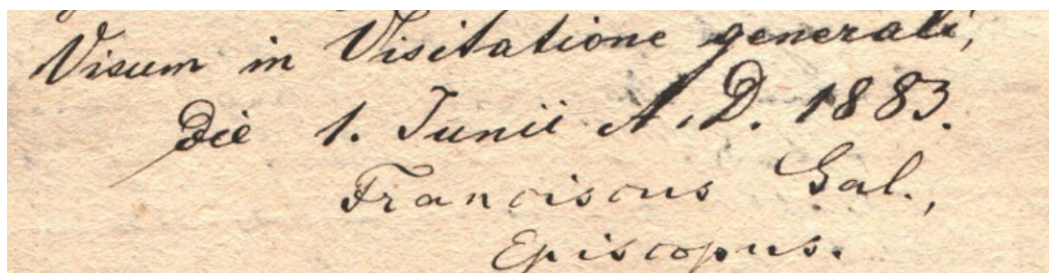 Visum in Visitatione generali,
die 1. Junii A. D. 1883.
Franciscus Gal.,
Episcopus.